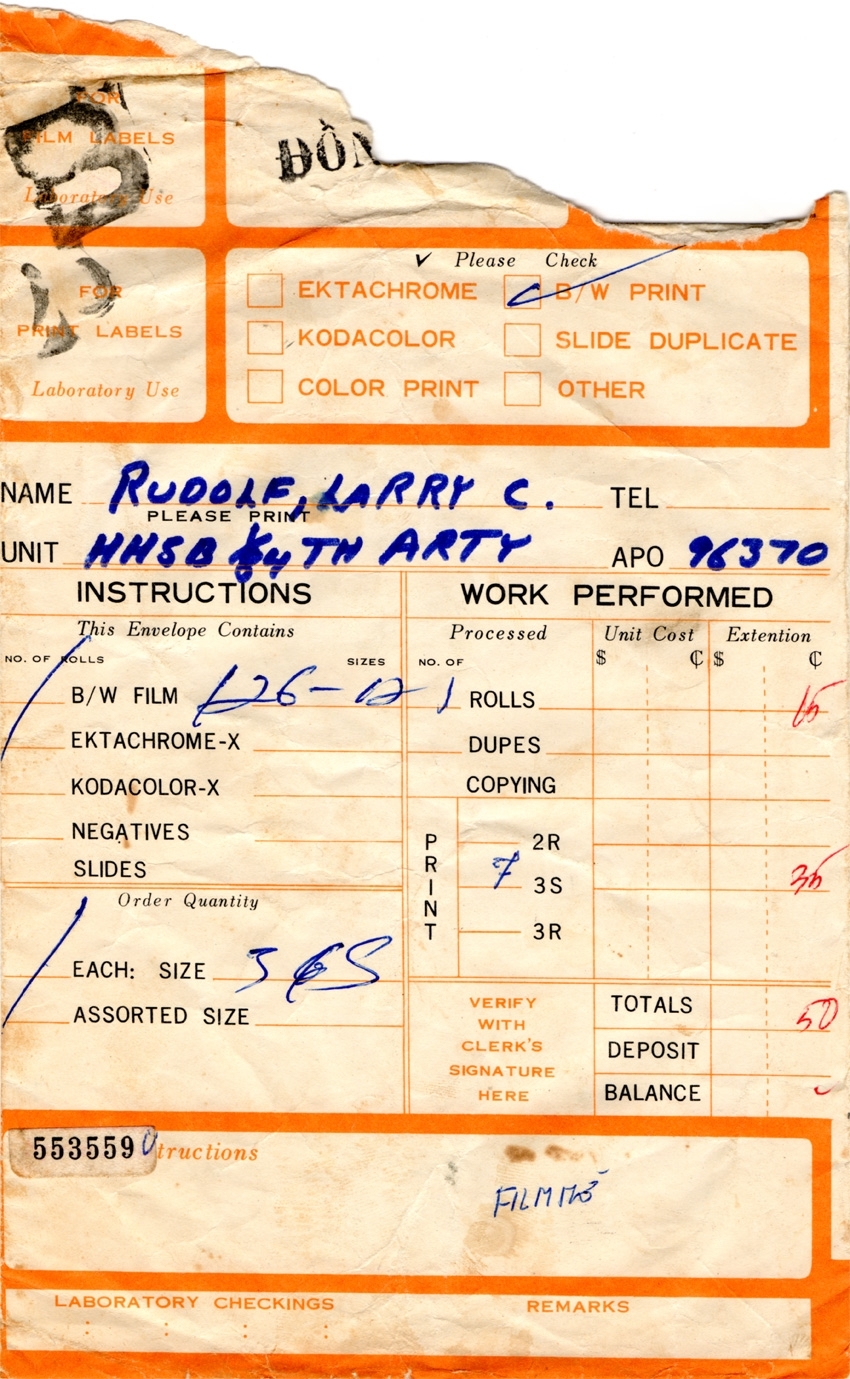 FOR
FILM LABELS
Laboratory Use
ĐỒN
FOR
PRINT LABELS
Laboratory Use
✓ Please Check
EKTACHROME
B/W PRINT
KODACOLOR
SLIDE DUPLICATE
COLOR PRINT
OTHER
NAME RUDOLF, LARRY C. TEL
PLEASE PRINT
UNIT HHSB 8/4TH ARTY APO 96370
INSTRUCTIONS
This Envelope Contains
NO. OF ROLLS SIZES
B/W FILM 126-12
EKTACHROME-X
KODACOLOR-X
NEGATIVES
SLIDES
Order Quantity
EACH: SIZE 3 S
ASSORTED SIZE
WORK PERFORMED
Processed Unit Cost Extention
NO. OF $ ¢ $ ¢
1 ROLLS 15
DUPES
COPYING
PRINT
2R
7 3S 35
3R
VERIFY
WITH
CLERK'S
SIGNATURE
HERE
TOTALS 50
DEPOSIT
BALANCE
553559 tructions
FILM
LABORATORY CHECKINGS REMARKS